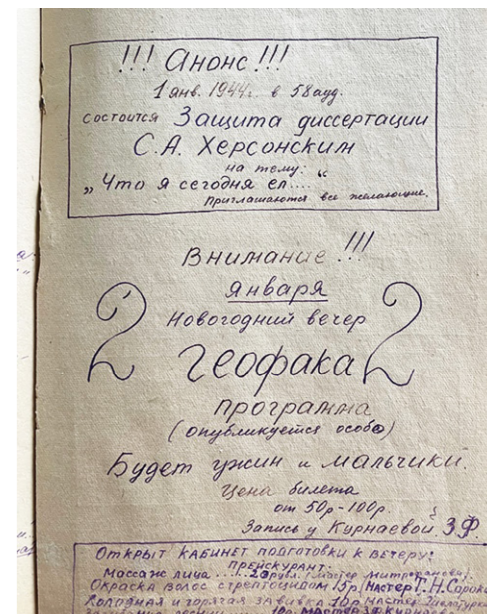 !!! Анонс !!!
1 янв. 1944г. в 58 ауд.
состоится Защита диссертации
С.А. Херсонским
на тему:
„Что я сегодня ел....“
Приглашаются все желающие.
Внимание!!!
января
2 Новогодний вечер 2
геофака
программа
(опубликуется особо)
Будет ужин и мальчики.
Цена билета
от 50р-100р.
Запись у Курнаевой З.Ф.
Открыт кабинет подготовки к вечеру:
Прейскурант:
Массаж лица ..... 20 рубл. (мастер Митрофанова)
Окраска волос стрептоцидом 15р. Мастер Т.Н. Сорок
Холодная и горячая завивка 10р. Мастер